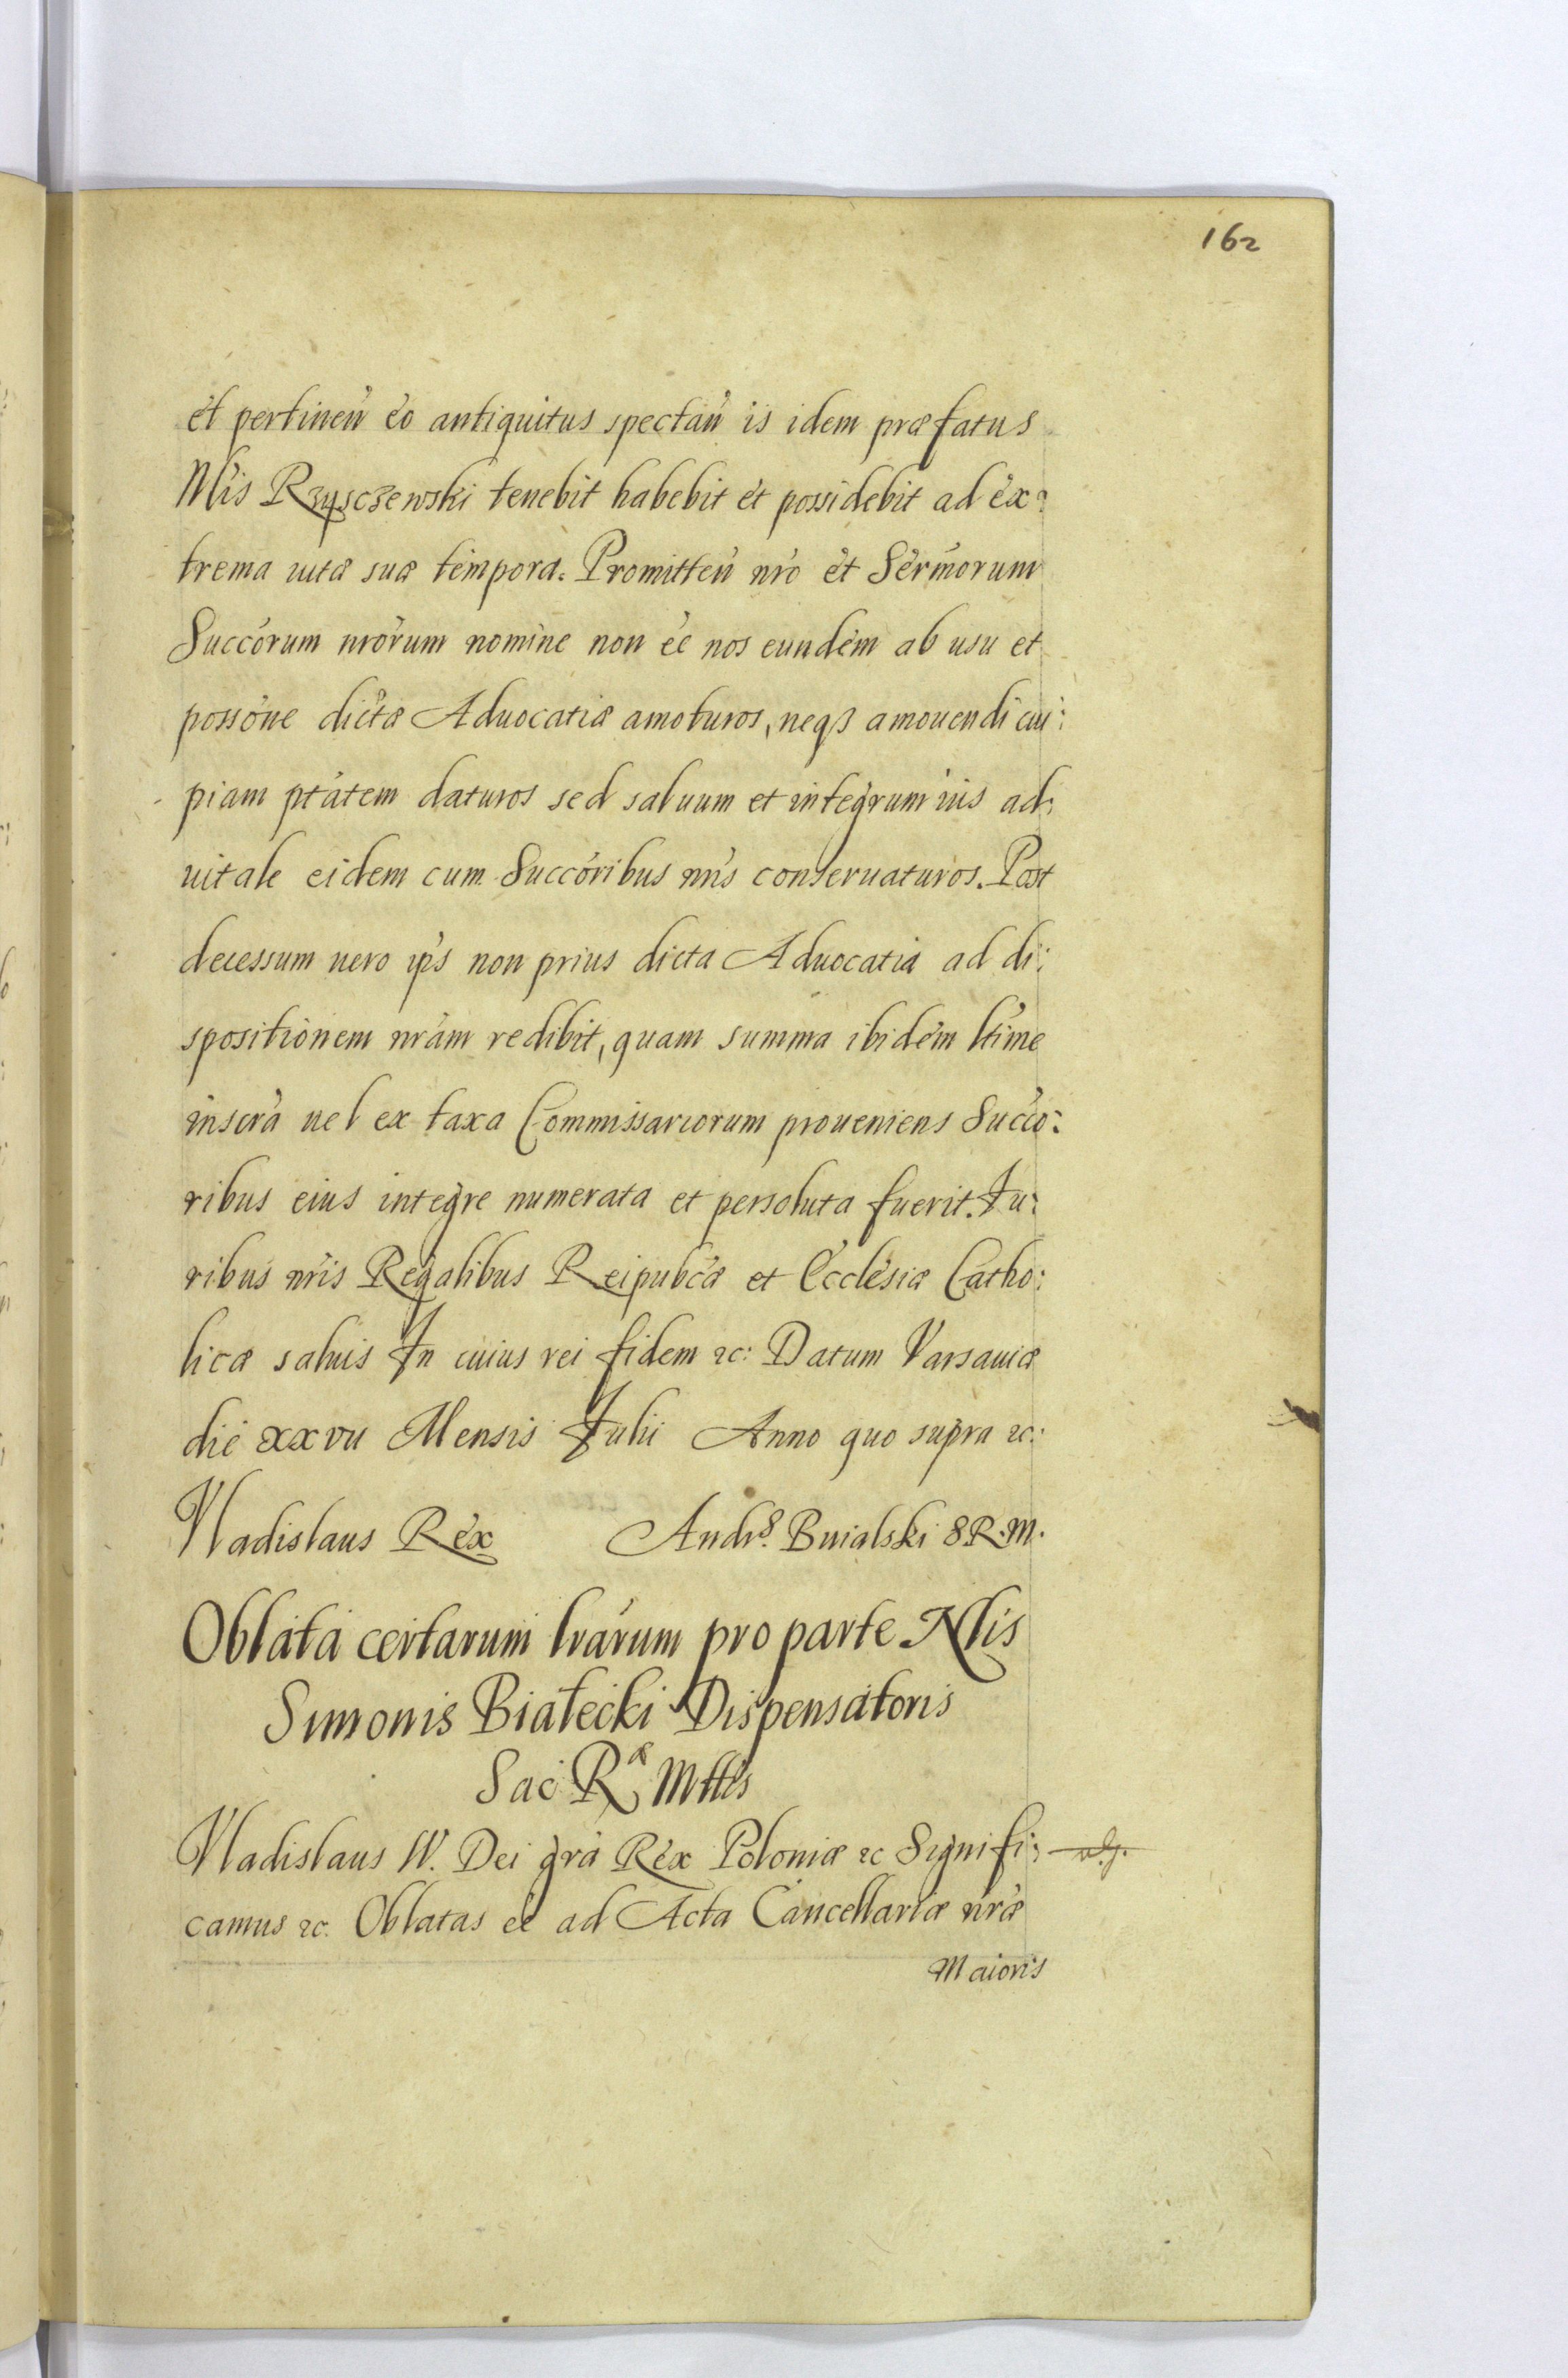 162
et pertineń eo antiquitus spectań is idem præfatus
Nlis Rzysczewski tenebit habebit et possidebit ad ex:
trema uitæ suæ tempora. Promitteń nro et Sermorum
Succorum nrorum nomine non ee nos eundem ab usu et
possone dictæ Aduocatiæ amoturos, neqз amouendi cui:
piam ptatem daturos sed saluum et integrum ius ad:
uitale eidem cum Succoribus nris conseruaturos. Post
decessum uero ips non prius dicta Aduocatia ad di:
spositionem nram redibit, quam summa ibidem ltime
inscra uel ex taxa Commissariorum proueniens Succo:
ribus eius integre numerata et persoluta fuerit. Iu:
ribus nris Regalibus Reipubcæ et Ecclesiæ Catho:
licæ saluis In cuius rei fidem &c: Datum Varsauiæ
die xxvii Mensis Iulii Anno quo supra &c:
Vladislaus Rex Andrs. Buialski S.R.M.
Oblata certarum lrarum pro parte Nlis
Simonis Białecki Dispensatoris
Sac Ræ Mttis
Vladislaus IV. Dei gra Rex Poloniæ &c Signifi:
camus &c. Oblatas ee ad Acta Cancellariæ nræ
Maioris